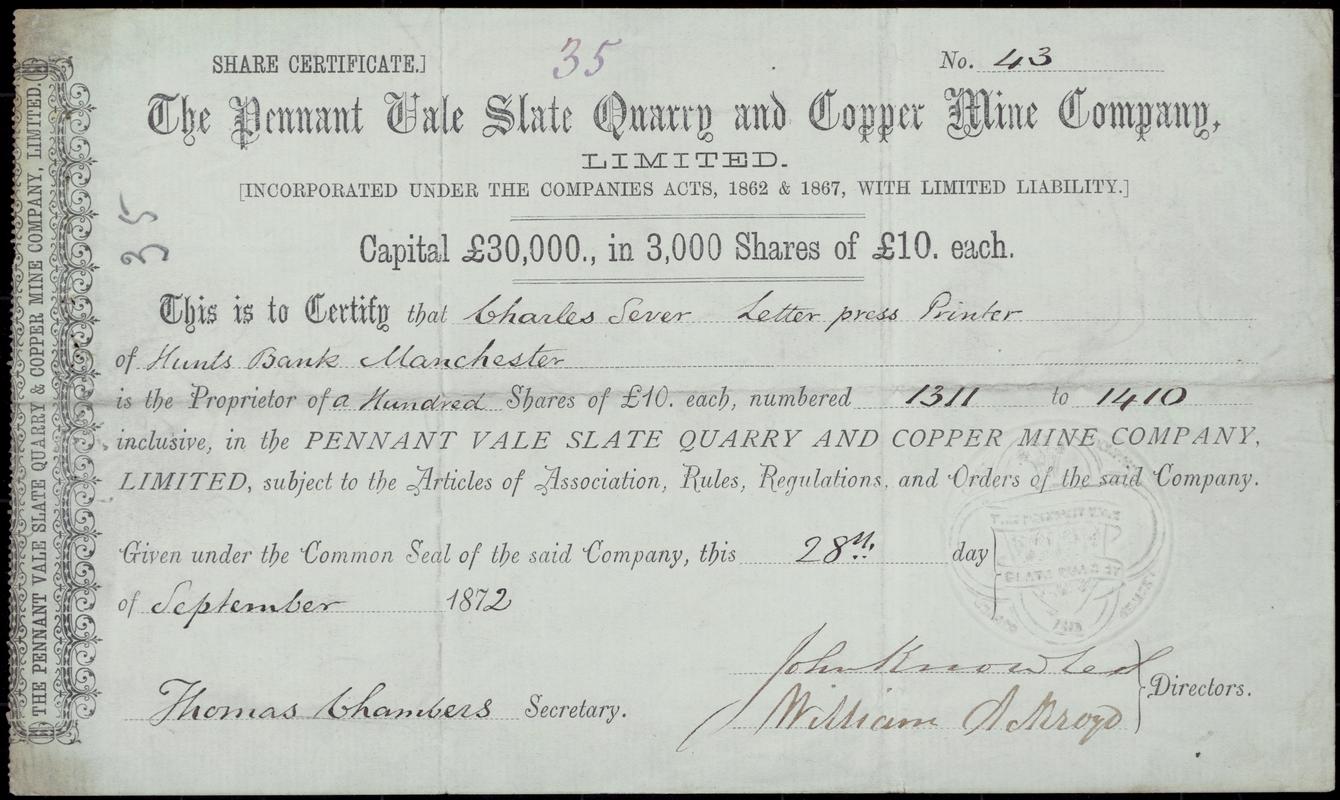 SHARE CERTIFICATE.]
35
No. 43
The Pennant Vale Slate Quarry and Copper Mine Company,
LIMITED.
[INCORPORATED UNDER THE COMPANIES ACTS, 1862 & 1867, WITH LIMITED LIABILITY.]
35
Capital £30,000., in 3,000 Shares of £10. each.
This is to Certify that Charles Sever Letter press Printer
of Hunts Bank Manchester
is the Proprietor of a Hundred Shares of £10. each, numbered 1311 to 1410
inclusive, in the PENNANT VALE SLATE QUARRY AND COPPER MINE COMPANY,
LIMITED, subject to the Articles of Association, Rules, Regulations, and Orders of the said Company.
Given under the Common Seal of the said Company, this 28th day
of September 1872
John Knowles
Thomas Chambers Secretary.
William Ackroyd
Directors.
THE PENNANT VALE SLATE QUARRY & COPPER MINE COMPANY, LIMITED.